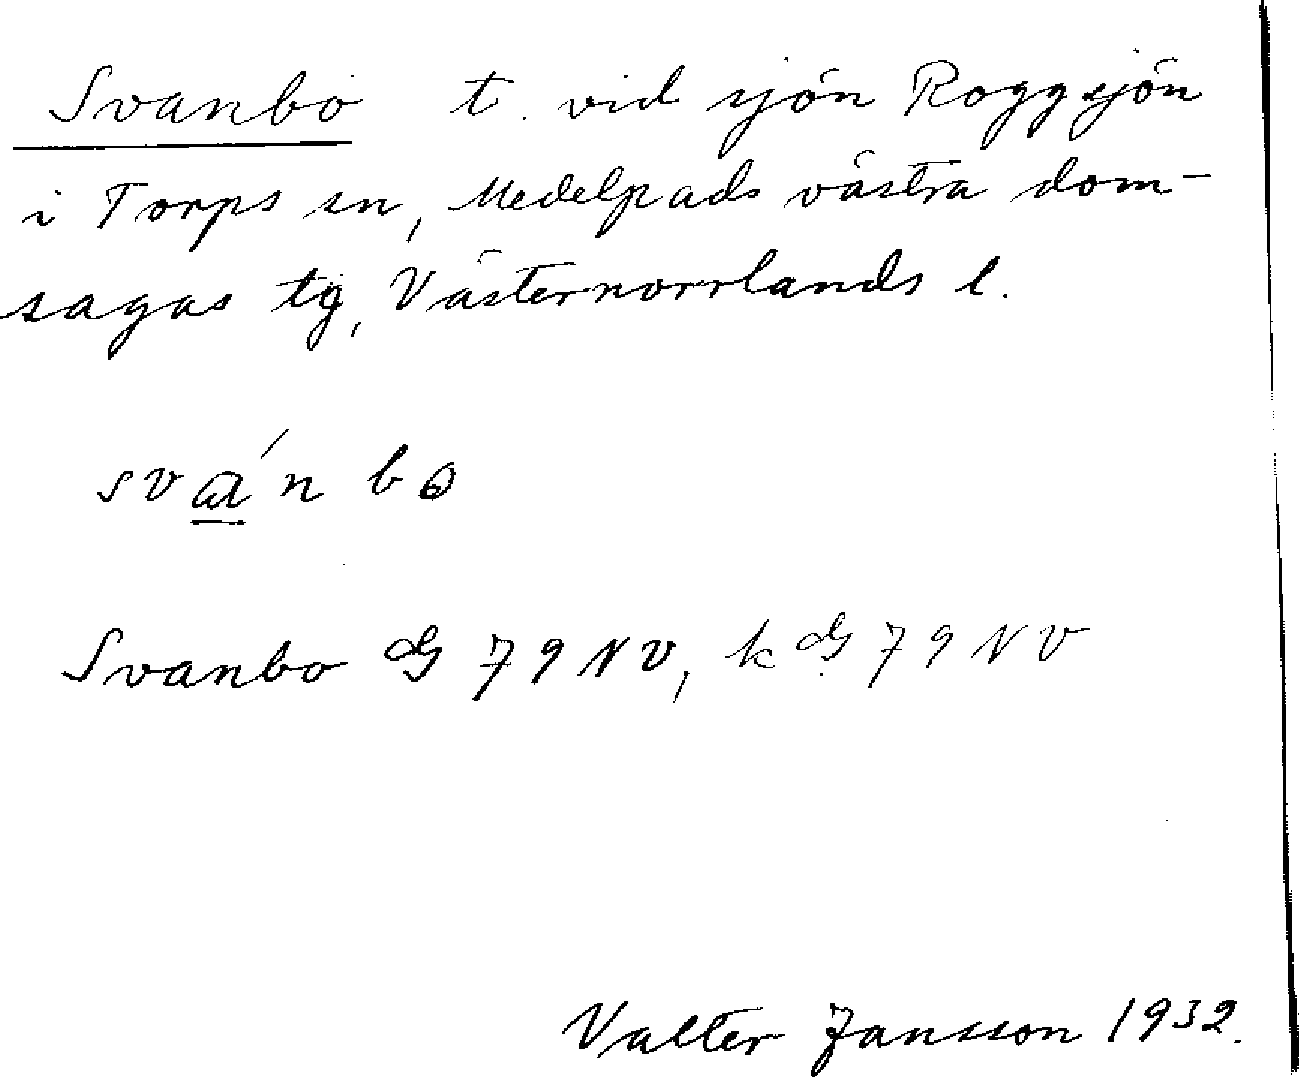 Svanbo t. vid sjön Roggsjön
i Torps sn, Medelpads västra dom-
sagas tg, Västernorrlands l.
Svanbo G 79 NV, k G 79 NV
Valter Jansson 1932.